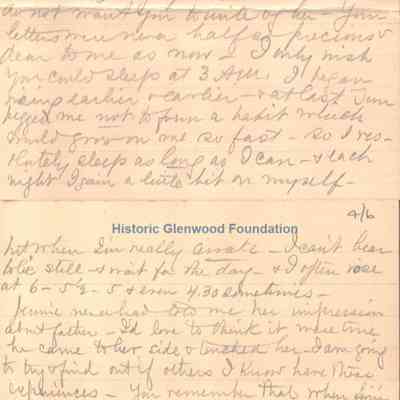 do not want you to write of her - Your
letters were never half so precious &
dear to me as now - I only wish
you could sleep at 3 A.M. I began
rising earlier & earlier - & at last Jim
begged me not to form a habit which
would grow on me so fast - so I res-
olutely sleep as long as I can - & each
night I gain a little bit on myself -
4/6
Historic Glenwood Foundation
but when I'm really awake - I can't bear
to lie still & wait for the day - & I often rise
at 6 - 5½ - 5 & even 4.30 sometimes -
Jennie never had told me her impression
about father - I'd love to think it were true
he came to her side & touched her - I am going
to try & find out if others I know have these
experiences - You remember that when